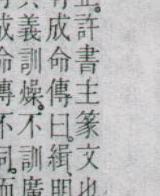 許書主篆文也
有成命傳曰。緝明
其義訓燥。不訓廣
成命傳不同。而